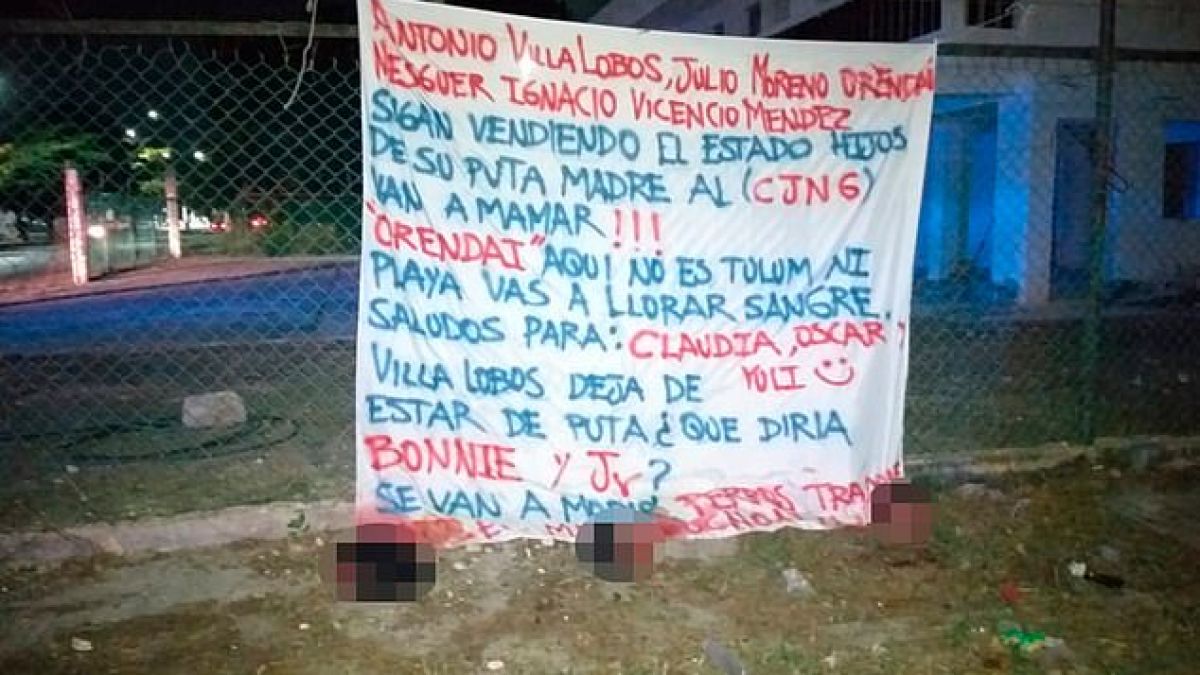 ANTONIO VILLALOBOS, JULIO MORENO ORENDAIN
NESGUER IGNACIO VICENCIO MENDEZ
SIGAN VENDIENDO EL ESTADO HIJOS
DE SU PUTA MADRE AL (CJNG)
VAN A MAMAR!!!
"ORENDAI" AQUI NO ES TULUM NI
PLAYA VAS A LLORAR SANGRE.
SALUDOS PARA: CLAUDIA, OSCAR Y
VILLA LOBOS DEJA DE YULI
ESTAR DE PUTA ¿QUE DIRIA
BONNIE Y Jr?
SE VAN A